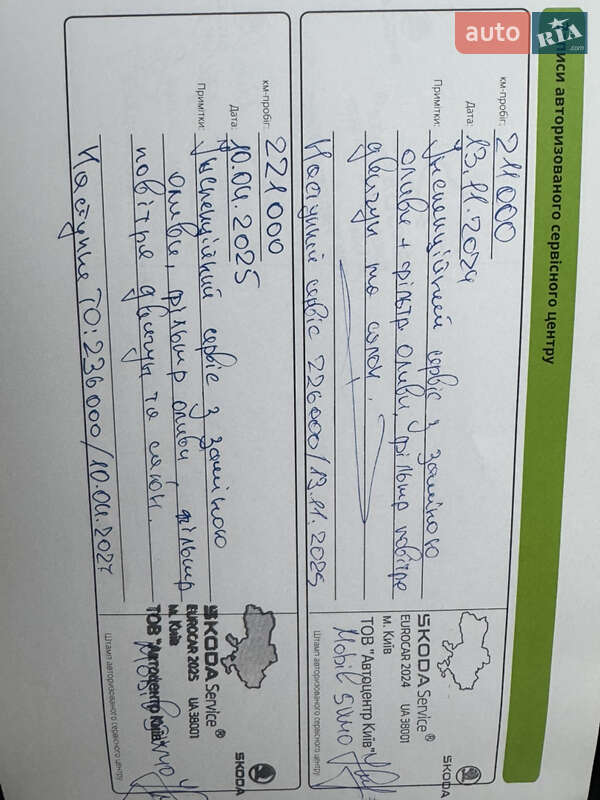 auto RIA.com
писи авторизованого сервісного центру
км-пробіг: 211000
Дата: 13.11.2024
Примітки: Інспекційний сервіс з заміною
оливи + фільтр оливи, фільтр повітря
двигуна та салон.
Наступний сервіс 226000/13.11.2025
SKODA Service®
EUROCAR 2024 UA 38001
м. Київ
ТОВ "Автоцентр Київ"
Mobil 5W40
Штамп авторизованого сервісного центру
SKODA
км-пробіг: 221000
Дата: 10.04.2025
Примітки: Інспекційний сервіс з заміною
оливи, фільтр оливи, фільтр
повітря двигуна та салон.
Наступне ТО: 236000/10.04.2027
SKODA Service®
EUROCAR 2025 UA 38001
м. Київ
ТОВ "Автоцентр Київ"
Штамп авторизованого сервісного центру
SKODA